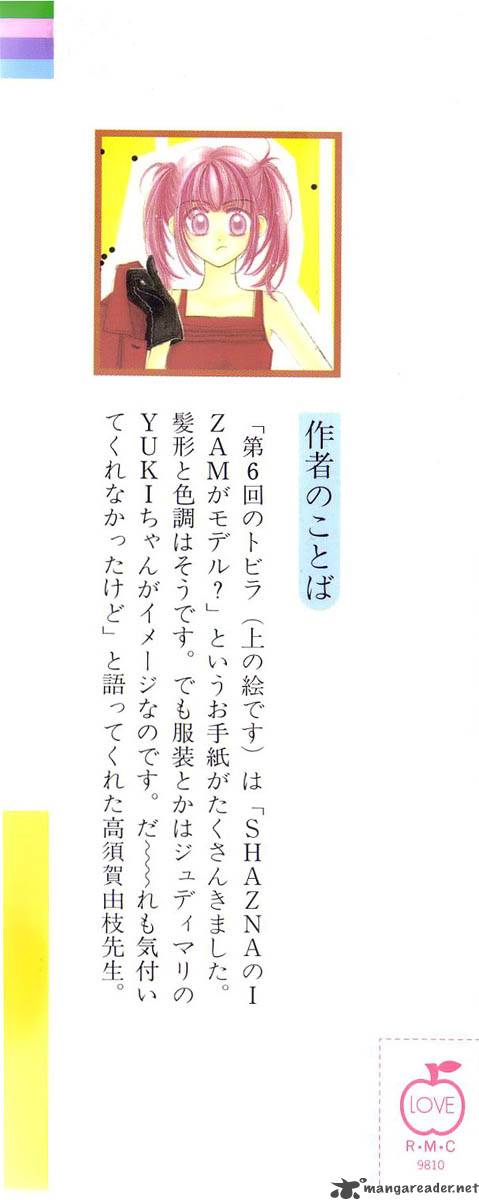 作者のことば
「第6回のトビラ（上の絵です）は「SHAZNAのI
ZAMがモデル？」というお手紙がたくさんきました。
髪形と色調はそうです。でも服装とかはジュディマリの
YUKIちゃんがイメージなのです。だ〜〜〜れも気付い
てくれなかったけど」と語ってくれた高須賀由枝先生。
LOVE
R・M・C
9810
mangareader.net